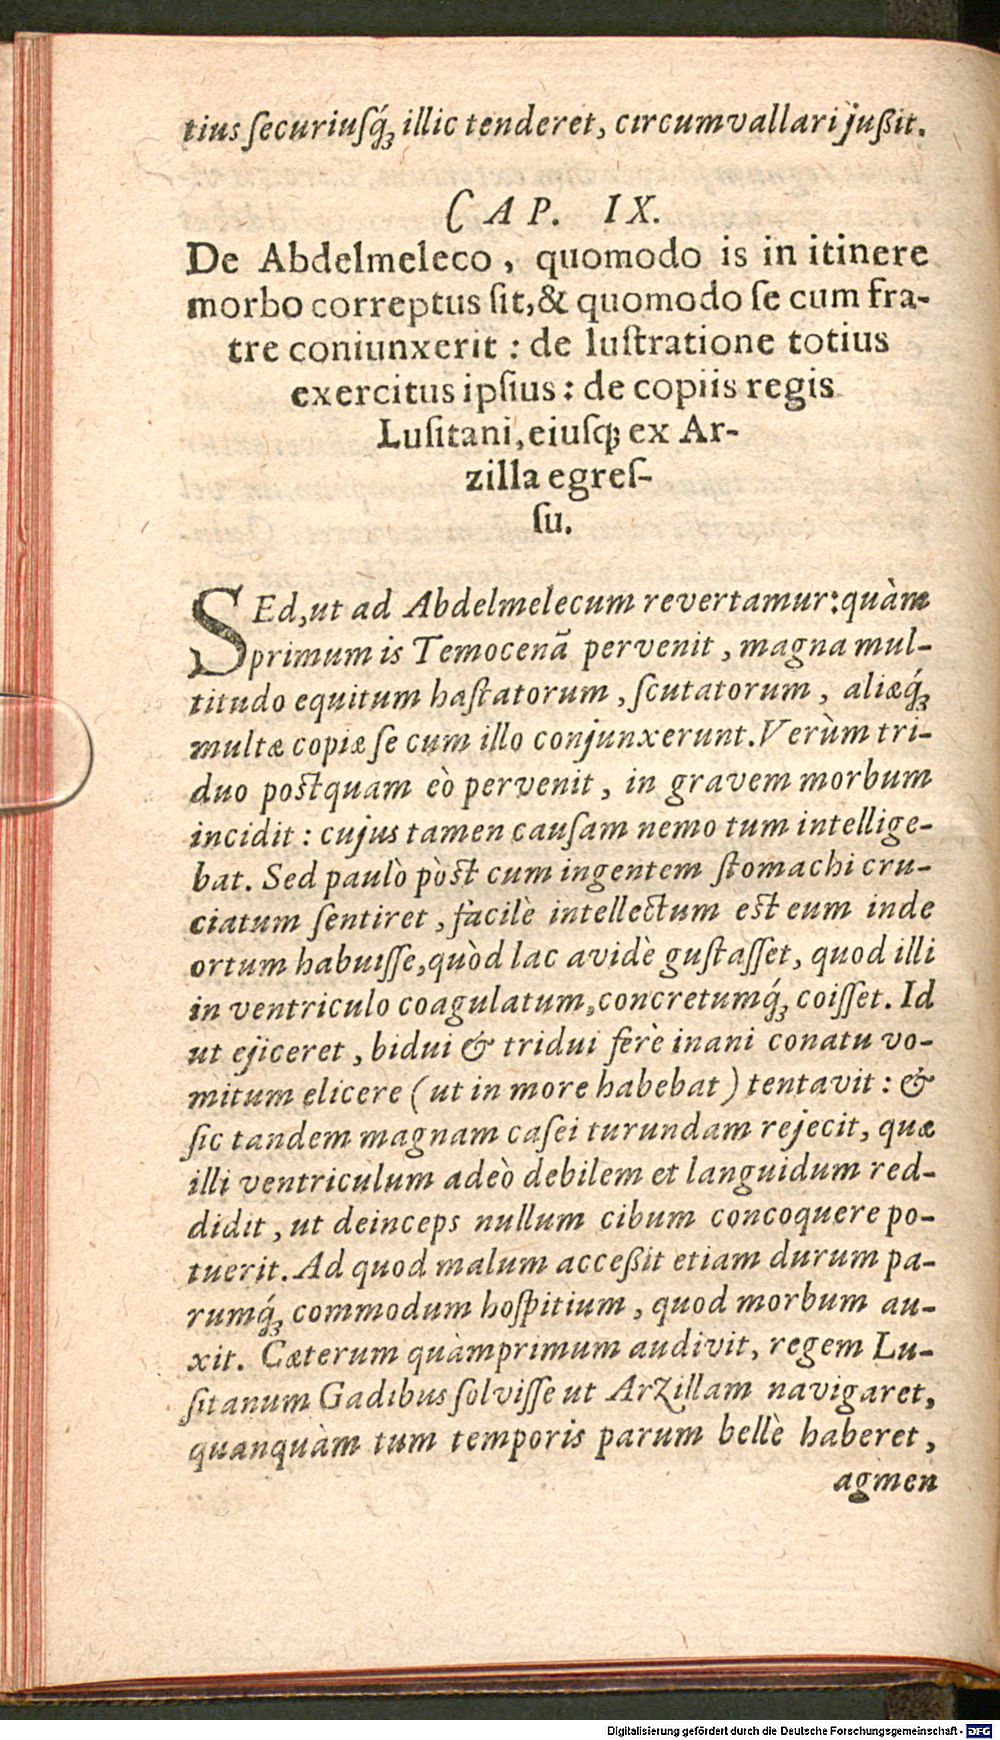 tius ſecuriuſq́; illic tenderet, circumvallari jußit.
CAP. IX.
De Abdelmeleco, quomodo is in itinere
morbo correptus ſit, & quomodo ſe cum fra-
tre coniunxerit : de luſtratione totius
exercitus ipſius : de copiis regis
Luſitani, eiuſq; ex Ar-
zilla egreſ-
ſu.
SEd, ut ad Abdelmelecum revertamur: quàm
primum is Temocenã pervenit, magna mul-
titudo equitum haſtatorum, ſcutatorum, aliæq́;
multæ copiæ ſe cum illo conjunxerunt. Verùm tri-
duo poſtquam eò pervenit, in gravem morbum
incidit : cujus tamen cauſam nemo tum intellige-
bat. Sed paulò pòſt cum ingentem ſtomachi cru-
ciatum ſentiret, facilè intellectum eſt eum inde
ortum habuiſſe, quòd lac avidè guſtaſſet, quod illi
in ventriculo coagulatum, concretumq́; coiſſet. Id
ut ejiceret, bidui & tridui ferè inani conatu vo-
mitum elicere (ut in more habebat) tentavit : &
ſic tandem magnam caſei turundam rejecit, quæ
illi ventriculum adeò debilem et languidum red-
didit, ut deinceps nullum cibum concoquere po-
tuerit. Ad quod malum acceßit etiam durum pa-
rumq́; commodum hoſpitium, quod morbum au-
xit. Cæterum quàmprimum audivit, regem Lu-
ſitanum Gadibus ſolviſſe ut Arzillam navigaret,
quanquàm tum temporis parum bellè haberet,
agmen
Digitalisierung gefördert durch die Deutsche Forschungsgemeinschaft - DFG